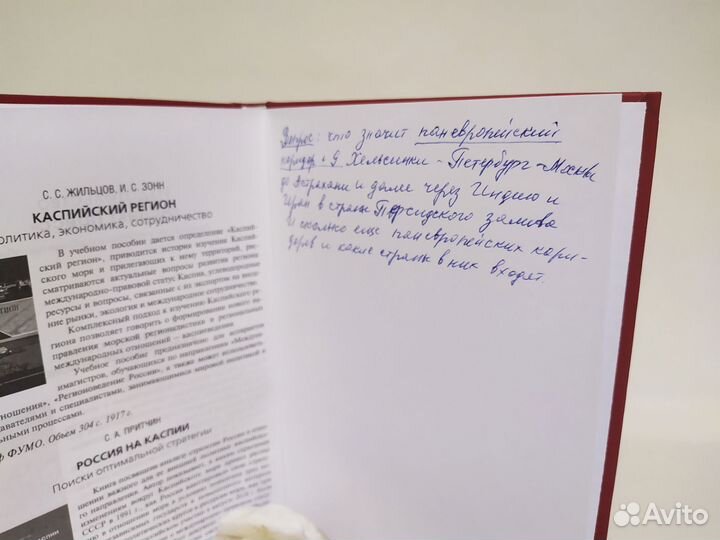 С. С. ЖИЛЬЦОВ, И. С. ЗОНН
КАСПИЙСКИЙ РЕГИОН
олитика, экономика, сотрудничество
В учебном пособии дается определение «Каспий-
ский регион», приводится история изучения Каспий-
ского моря и прилегающих к нему территорий, рас-
сматриваются актуальные вопросы развития региона
международно-правовой статус Каспия, углеводородные
ресурсы и вопросы, связанные с их экспортом на внеш-
ние рынки, экология и международное сотрудничество.
Комплексный подход к изучению Каспийского ре-
гиона позволяет говорить о формировании нового на-
правления морской регионалистики и регионального
международных отношений — каспиеведения.
Учебное пособие предназначено для
магистров, обучающихся по направлениям «Междун
отношения», «Регионоведение России», а также может использовать
давателями и специалистами, занимающимися мировой политикой и
льными процессами.
ф ФУМО. Объем 304 с. 1917 г.
С. А. ПРИТЧИН
РОССИЯ НА КАСПИИ
Поиски оптимальной стратегии
Книга посвящена анализу стратегии России в отно-
шении важного для ее внешней политики
го направления. Автор
изменениям вокруг Каспийского
СССР в 1991 г., как Россия
Вопрос: кто значит панъевропейский
коридор 9 Хельсинки - Петербург - Москва
до Астрахани и далее через Индию и
Иран в страны Персидского залива
и сколько еще панъевропейских кори-
доров и какие страны в них входят.
Avito